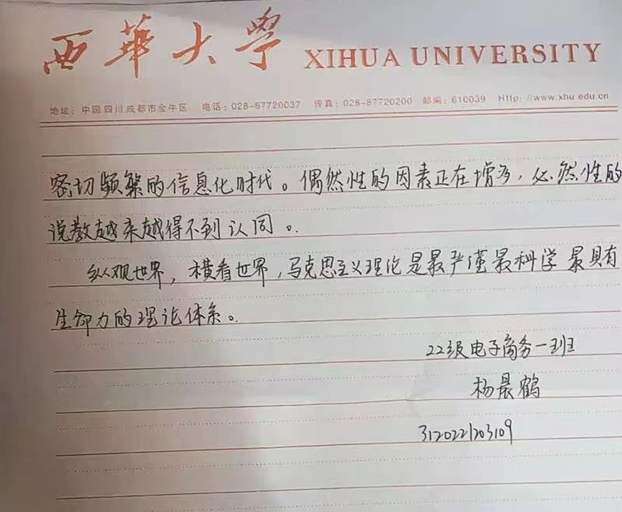 西華大學 XIHUA UNIVERSITY
地址:中国四川成都市金牛区 电话:028-87720037 传真:028-87720200 邮编:610039 Http://www.xhu.edu.cn
密切频繁的信息化时代。偶然性的因素正在增多,必然性的
说教越来越得不到认同。
纵观世界,横看世界,马克思主义理论是最严谨最科学最具有
生命力的理论体系。
22级电子商务一班
杨晨鹤
3120221203109